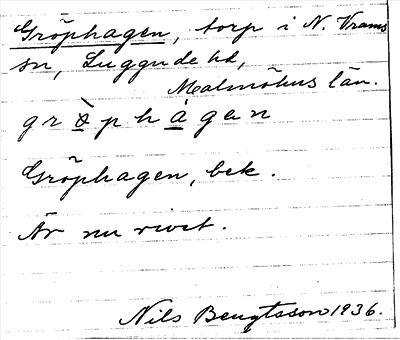 Gröphagen, torp i N. Vrams
sn, Luggude hd,
Malmöhus län.
gr ö̀ p h à gen
Gröphagen, bek.
Är nu rivet.
Nils Bengtsson 1936.